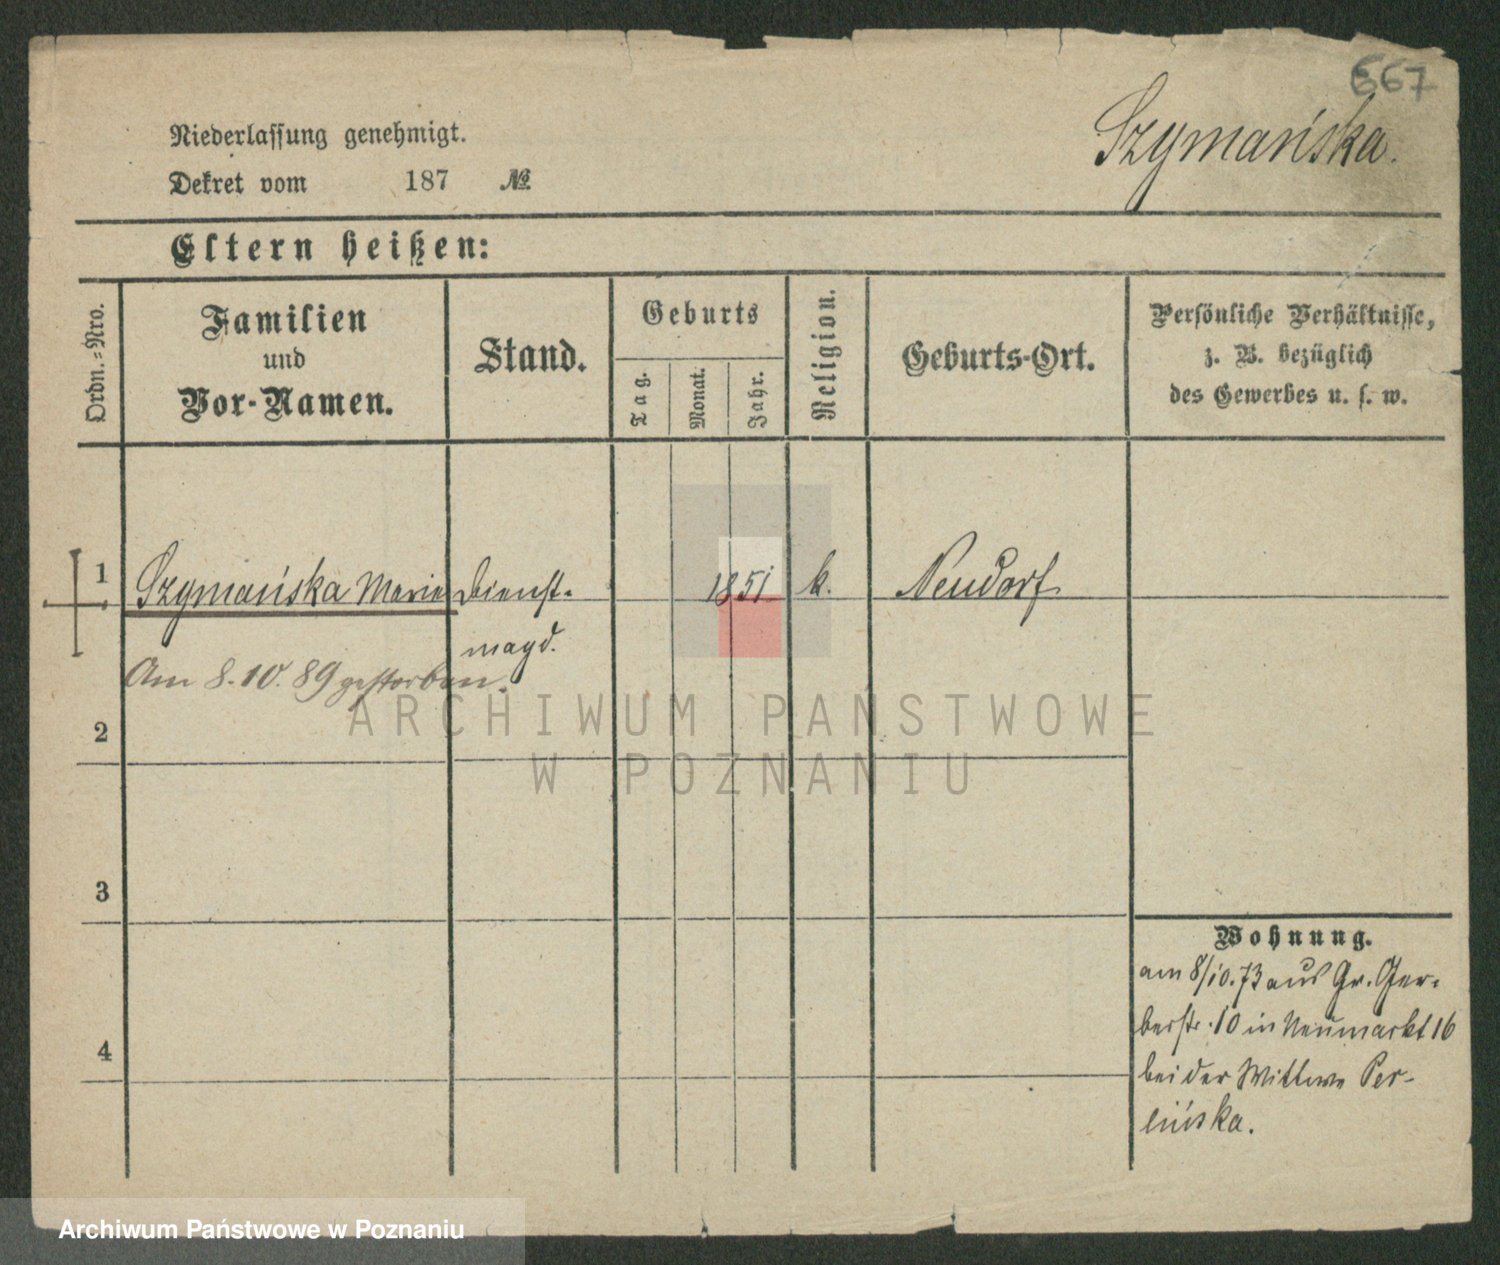 667
Szymańska.
Niederlassung genehmigt.
Dekret vom 187 №
Eltern heißen:
Ordn.=Nro.
Familien
und
Vor-Namen.
Stand.
Geburts
Tag.
Monat.
Jahr.
Religion.
Geburts-Ort.
Persönliche Verhältnisse,
z. B. bezüglich
des Gewerbes u. s. w.
1 Szymańska Marie Dienst- 1851 k. Neudorf
magd.
Am 8.10.89 gestorben.
2
3
4
Wohnung.
am 8/10.73 aus Gr. Ger-
berstr. 10 in Neumarkt 16
bei der Wittwe Per-
lińska.
ARCHIWUM PAŃSTWOWE
W POZNANIU
Archiwum Państwowe w Poznaniu